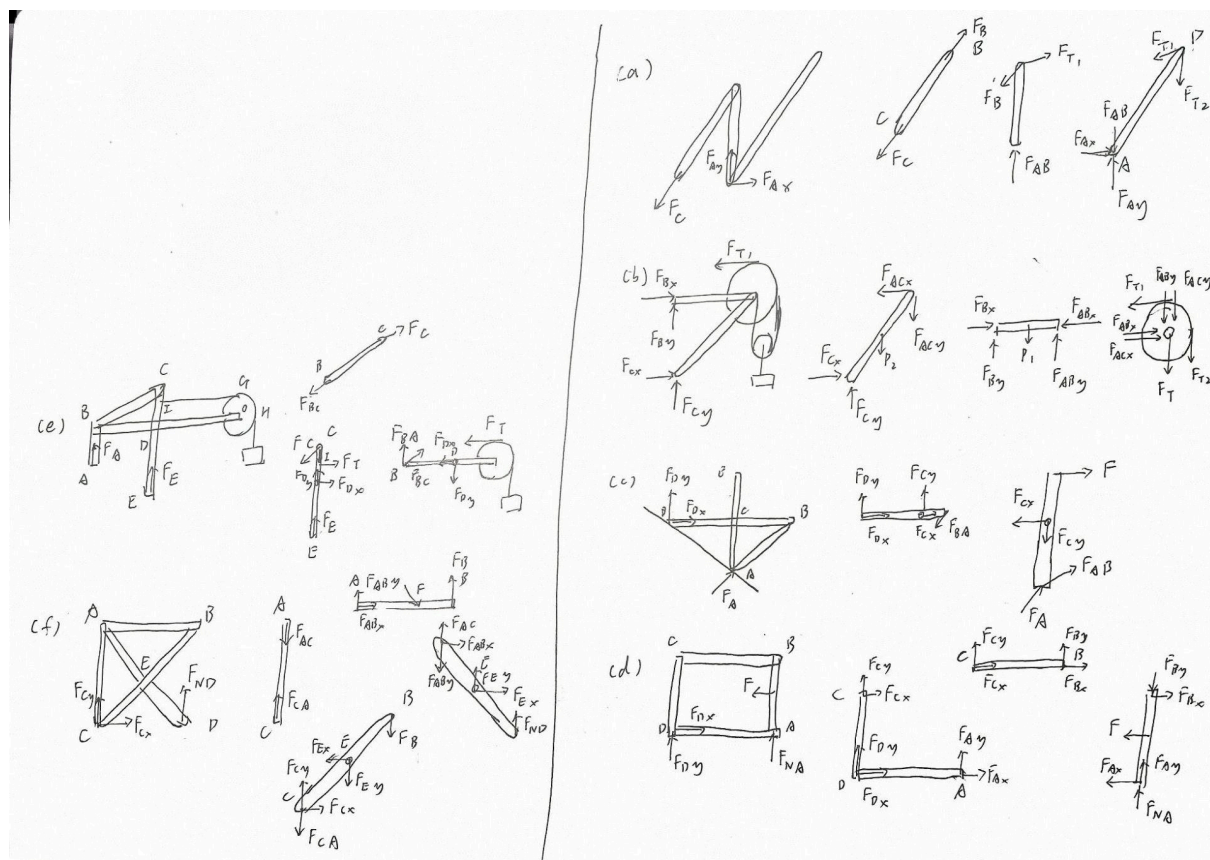 (a)
F_Ay
F_Ax
F_C
F_B
B
C
F_C
F_T1
F_B
F_AB
F_T1
F_T2
F_AB
F_Ax
A
F_Ay
(b)
F_T1
F_Bx
F_By
F_Cx
F_Cy
F_ACx
F_ACy
P_2
F_Cx
F_Cy
F_Bx
F_ABx
P_1
F_By
F_ABy
F_ABy
F_ACy
F_T1
F_ABx
F_ACx
F_T
F_T2
(c)
F_Dy
F_Dx
C
B
A
F_A
F_Dy
F_Cy
F_Dx
F_Cx
F_BA
F
F_Cx
F_Cy
F_AB
F_A
(d)
C
B
F
F_Dx
D
A
F_Dy
F_NA
F_Cy
C
F_Cx
F_Dy
F_Ay
D
A
F_Ax
F_Dx
F_Cy
F_By
C
B
F_Cx
F_Bx
F_By
F_Bx
F
F_Ax
F_Ay
F_NA
(e)
C
B
I
G
O
H
F_A
D
A
F_E
E
C
F_C
B
F_BC
F_C
C
I
F_T
F_Dy
F_Dx
F_E
E
F_BA
F_T
F_Dx
D
B
F_BC
F_Dy
(f)
A
B
E
F_ND
F_Cy
C
F_Cx
D
A
F_AC
F_CA
C
A
F_ABy
F
F_B
B
F_ABx
F_AC
F_ABx
F_ABy
E
F_Ey
F_Ex
F_ND
B
F_B
F_Ex
E
F_Cy
F_Ey
C
F_Cx
F_CA